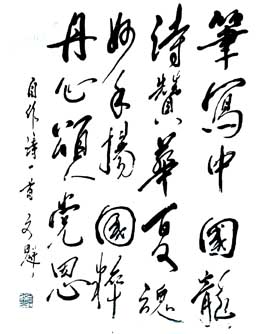 筆寫中國龍
詩贊華夏魂
妙手揚國粹
丹心頌黨恩
自作詩一首